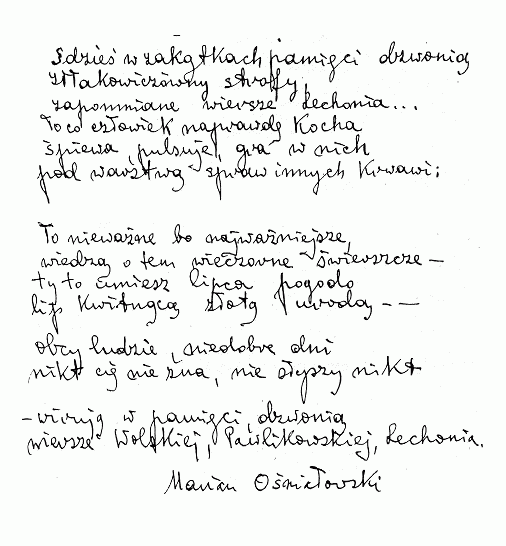 Gdzieś w zakątkach pamięci dzwonią
Iłłakowiczówny strofy,
zapomniane wiersze Lechonia...
To co człowiek naprawdę kocha
śpiewa, pulsuje, gra w nich
pod warstwą spraw innych krwawi;
To nieważne bo najważniejsze,
wiedzą o tem wieczorne świerszcze —
ty to umiesz lipca pogodo
lip kwitnącą złotą urodą — —
obcy ludzie, niedobre dni
nikt cię nie zna, nie słyszy nikt
— wirują w pamięci, dzwonią
wiersze Wolskiej, Pawlikowskiej, Lechonia.
Marian Ośniałowski